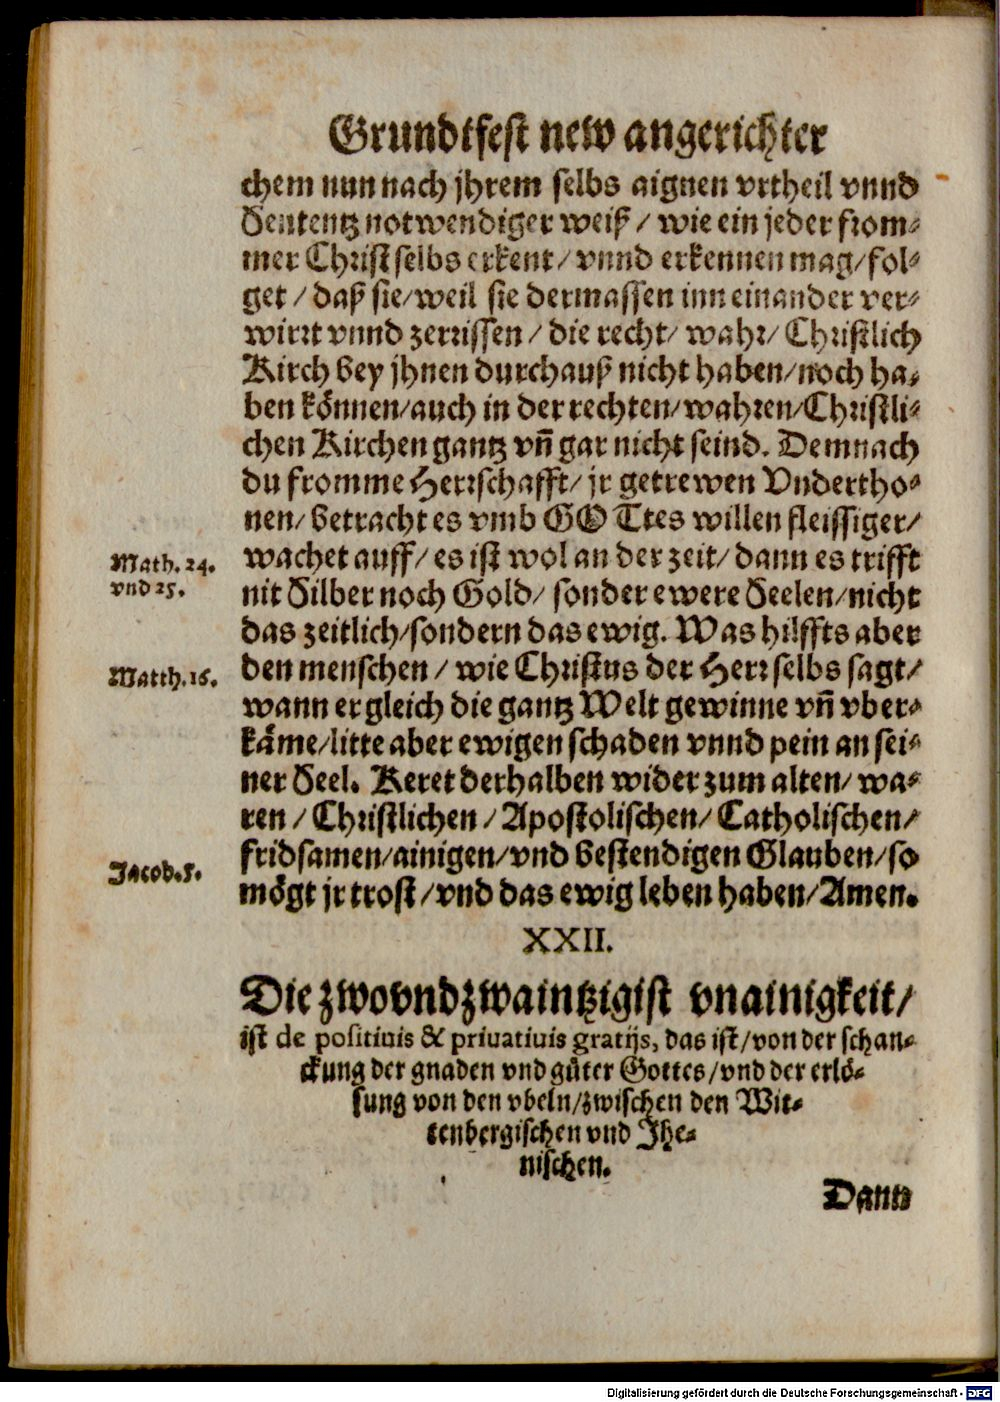 Grundtfest new angerichter
chem nun nach jhrem selbs aignen vrtheil vnnd
Sententz notwendiger weiß / wie ein jeder from-
mer Christ selbs erkent / vnnd erkennen mag / fol-
get / daß sie / weil sie dermassen inn einander ver-
wirrt vnnd zerrissen / die recht / wahr / Christlich
Kirch bey jhnen durchauß nicht haben / noch ha-
ben können / auch in der rechten / wahren / Christli-
chen Kirchen gantz vn̄ gar nicht seind. Demnach
du fromme Herrschafft / jr getrewen Vndertho-
nen / betracht es vmb GOTtes willen fleissiger /
Math. 24.
vnd 25.
wachet auff / es ist wol an der zeit / dann es trifft
nit Silber noch Gold / sonder ewere Seelen / nicht
das zeitlich / sondern das ewig. Was hilffts aber
Matth. 16.
den menschen / wie Christus der Herr selbs sagt /
wann er gleich die gantz Welt gewinne vn̄ vber-
käme / litte aber ewigen schaden vnnd pein an sei-
ner Seel. Keret derhalben wider zum alten / wa-
ren / Christlichen / Apostolischen / Catholischen /
Jacob. 5.
fridsamen / ainigen / vnd bestendigen Glauben / so
mögt jr trost / vnd das ewig leben haben / Amen.
XXII.
Die zwovndzwaintzigist vnainigkeit /
ist de positiuis & priuatiuis gratijs, das ist / von der schan-
ckung der gnaden vnd güter Gottes / vnd der erlö-
sung von den vbeln / zwischen den Wit-
tenbergischen vnd Jhe-
nischen.
Dann
Digitalisierung gefördert durch die Deutsche Forschungsgemeinschaft - DFG